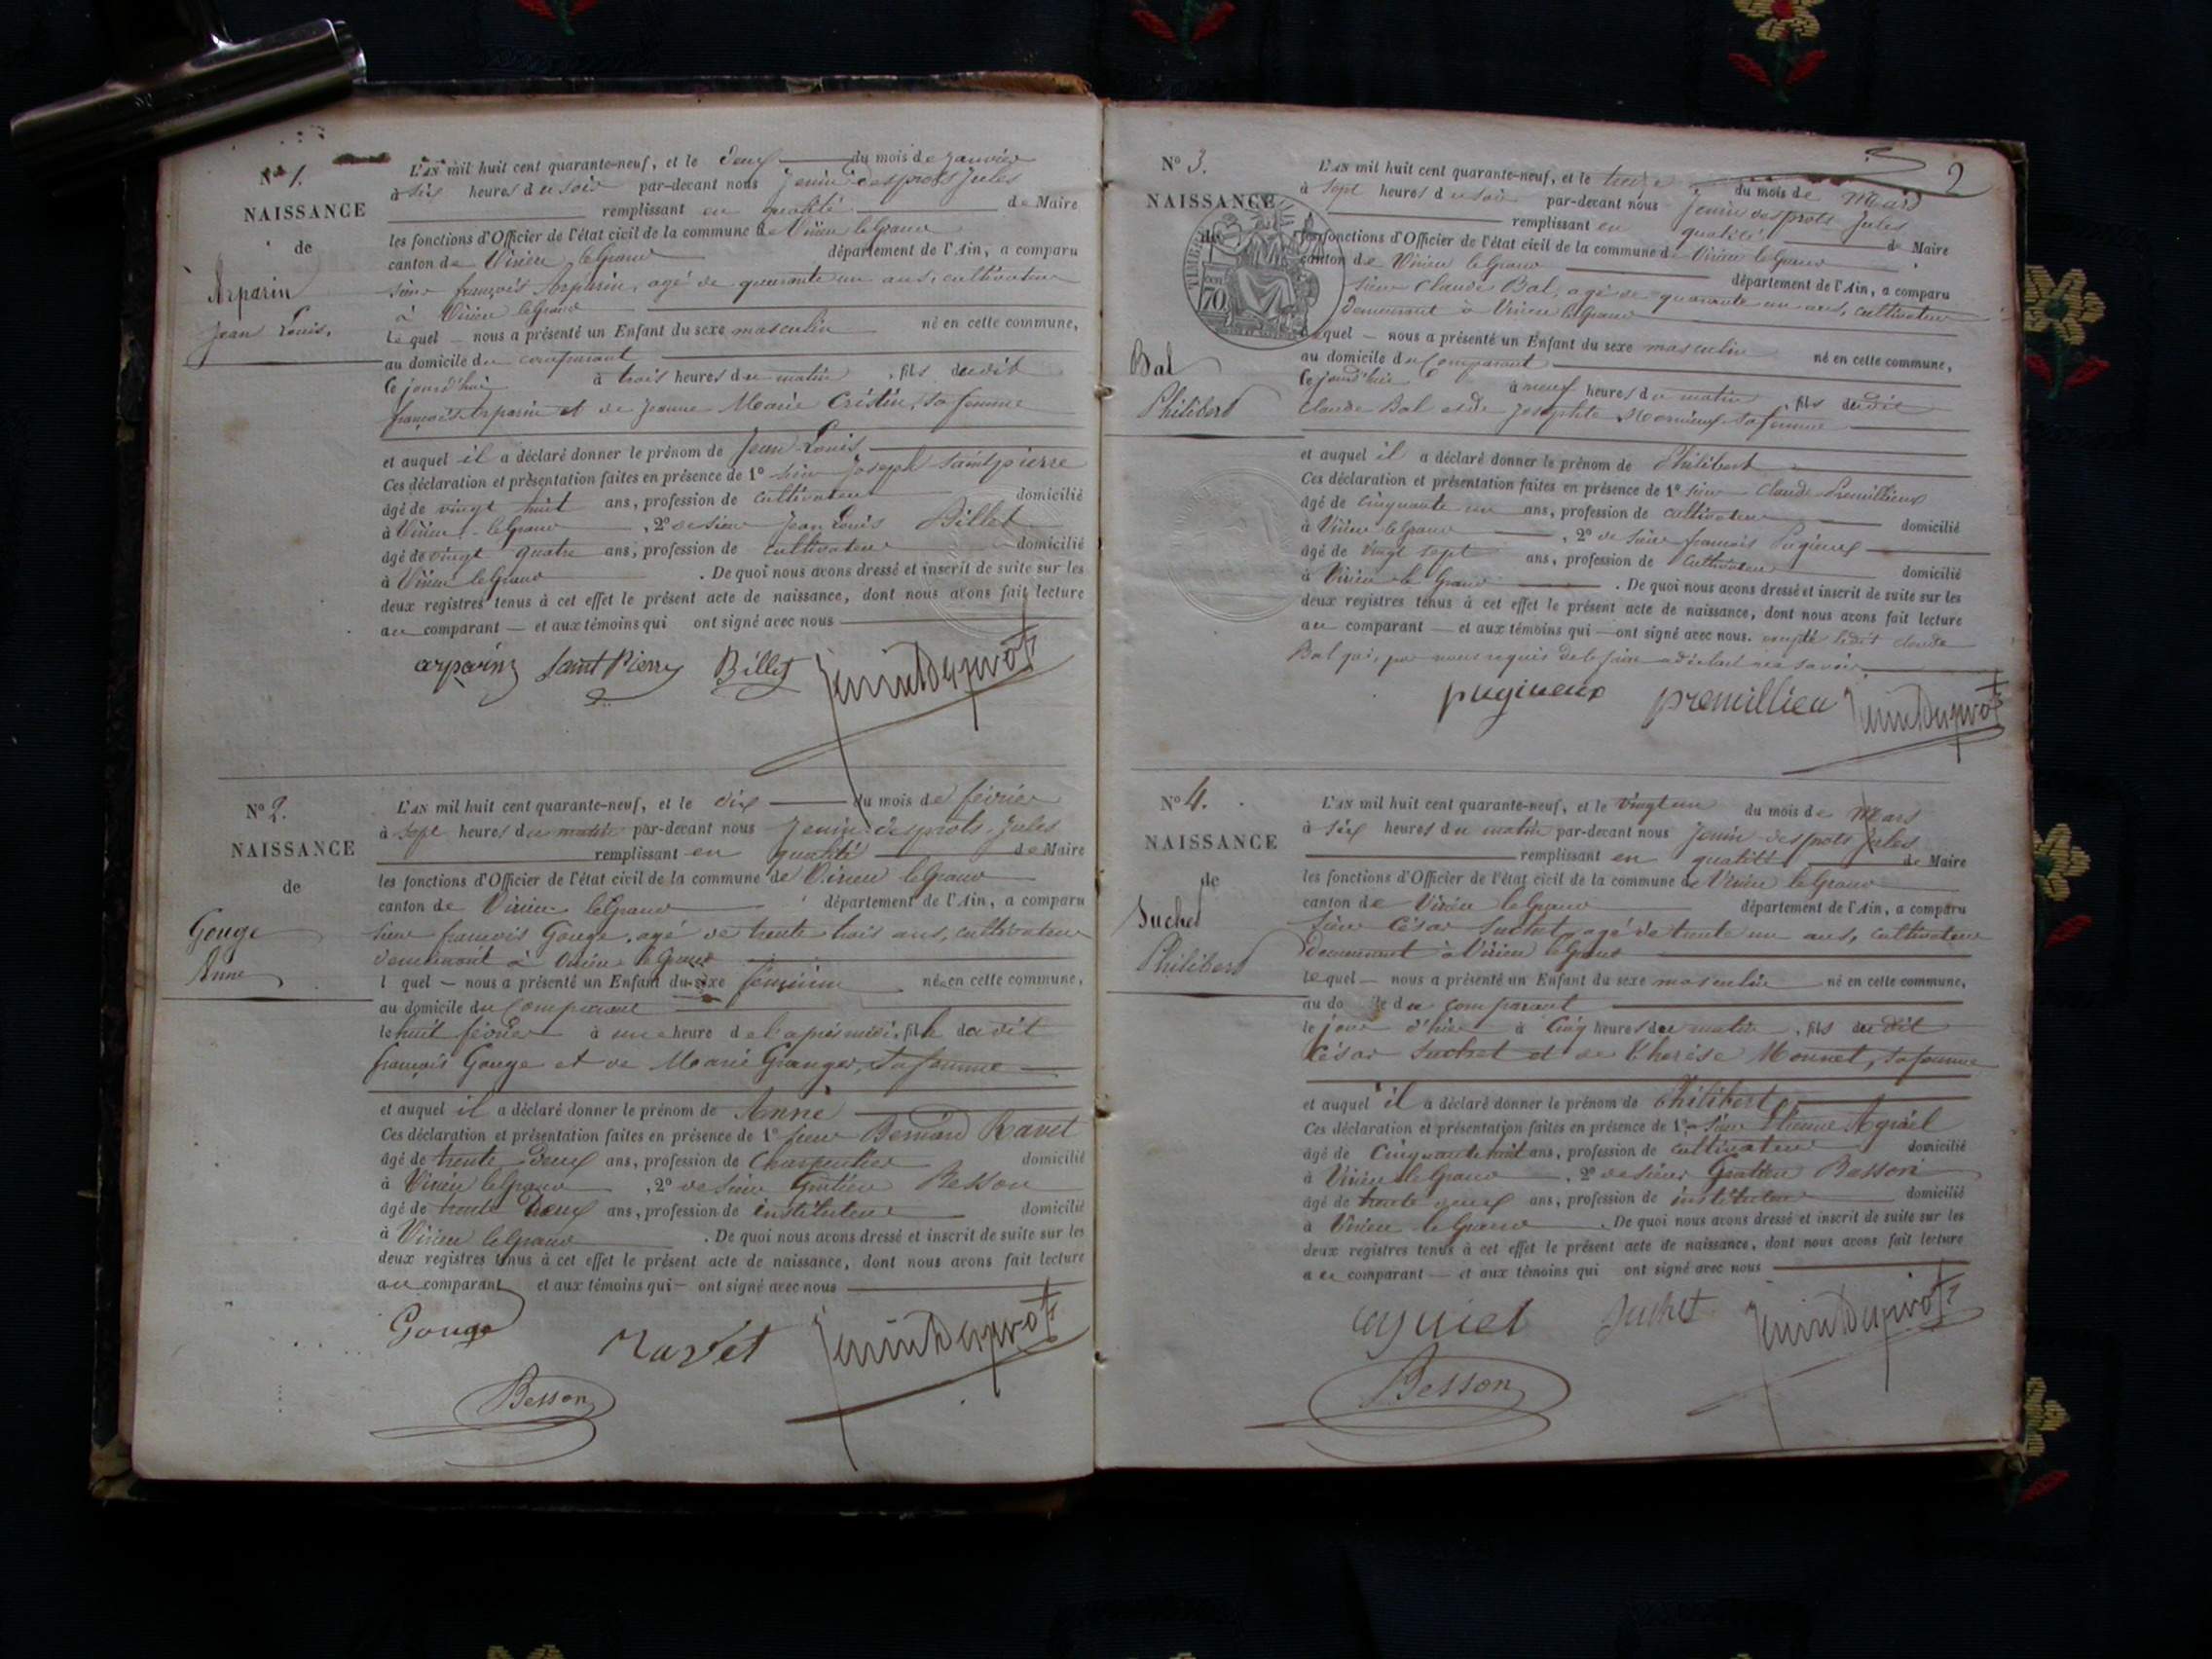 N° 1.
NAISSANCE
de
Arparin
Jean Louis.
L'AN mil huit cent quarante-neuf, et le deux du mois de janvier
à six heures du soir par-devant nous Jenin desprots Jules
remplissant en qualité de Maire
les fonctions d'Officier de l'état civil de la commune de Virieu le Grand
canton de Virieu le Grand département de l'Ain, a comparu
sieur françois Arparin, agé de quarante un ans, cultivateur
à Virieu le Grand
lequel nous a présenté un Enfant du sexe masculin né en cette commune,
au domicile du comparant
ce jourd'hui à trois heures du matin, fils dudit
françois Arparin et de jeanne Marie Cristin, sa femme
et auquel il a déclaré donner le prénom de Jean Louis
Ces déclaration et présentation faites en présence de 1° sieur Joseph Saintpierre
âgé de vingt huit ans, profession de cultivateur domicilié
à Virieu le Grand, 2° de sieur Jean Louis Billet
âgé de vingt quatre ans, profession de cultivateur domicilié
à Virieu le Grand. De quoi nous avons dressé et inscrit de suite sur les
deux registres tenus à cet effet le présent acte de naissance, dont nous avons fait lecture
au comparant et aux témoins qui ont signé avec nous
arparin Saint Pierre Billet Jenin Desprots
N° 2.
NAISSANCE
de
Gouge
Anne
L'AN mil huit cent quarante-neuf, et le dix du mois de février
à sept heures du matin par-devant nous Jenin desprots Jules
remplissant en qualité de Maire
les fonctions d'Officier de l'état civil de la commune de Virieu le Grand
canton de Virieu le Grand département de l'Ain, a comparu
sieur françois Gouge, agé de trente trois ans, cultivateur
demeurant à Virieu le Grand
lquel nous a présenté un Enfant du sexe féminin née en cette commune,
au domicile du Comparant
le huit février à une heure de l'après midi, fille dudit
françois Gouge et de Marie Granger, sa femme
et auquel il a déclaré donner le prénom de Anne
Ces déclaration et présentation faites en présence de 1° sieur Bernard Ravet
âgé de trente deux ans, profession de Charpentier domicilié
à Virieu le Grand, 2° de sieur Gratien Besson
âgé de trente deux ans, profession de instituteur domicilié
à Virieu le Grand. De quoi nous avons dressé et inscrit de suite sur les
deux registres tenus à cet effet le présent acte de naissance, dont nous avons fait lecture
au comparant et aux témoins qui ont signé avec nous
Gouge Ravet Jenin Desprots
Besson
2
N° 3.
NAISSANCE
de
Bal
Philibert
TIMBRE
70
L'AN mil huit cent quarante-neuf, et le treize du mois de Mars
à sept heures du soir par-devant nous Jenin desprots Jules
remplissant en qualité de Maire
les fonctions d'Officier de l'état civil de la commune de Virieu le Grand
canton de Virieu le Grand département de l'Ain, a comparu
sieur Claude Bal, agé de quarante un ans, cultivateur
demeurant à Virieu le Grand
lequel nous a présenté un Enfant du sexe masculin né en cette commune,
au domicile du Comparant
ce jourd'hui à neuf heures du matin, fils dudit
Claude Bal et de Josephte sa femme
et auquel il a déclaré donner le prénom de Philibert
Ces déclaration et présentation faites en présence de 1° sieur Claude Premillieux
âgé de cinquante un ans, profession de cultivateur domicilié
à Virieu le Grand, 2° de sieur françois Pugieux
âgé de vingt sept ans, profession de Cultivateur domicilié
à Virieu le Grand. De quoi nous avons dressé et inscrit de suite sur les
deux registres tenus à cet effet le présent acte de naissance, dont nous avons fait lecture
au comparant et aux témoins qui ont signé avec nous. excepté ledit claude
Bal qui, par nous requis de le faire a déclaré ne savoir
pugieux premillieu Jenin Desprots
N° 4.
NAISSANCE
de
Suchet
Philibert
L'AN mil huit cent quarante-neuf, et le vingt un du mois de Mars
à six heures du matin par-devant nous Jenin desprots Jules
remplissant en qualité de Maire
les fonctions d'Officier de l'état civil de la commune de Virieu le Grand
canton de Virieu le Grand département de l'Ain, a comparu
sieur César Suchet, agé de trente un ans, cultivateur
demeurant à Virieu le Grand
lequel nous a présenté un Enfant du sexe masculin né en cette commune,
au do le du comparant
le jour d'hier à Cinq heures du matin, fils dudit
César Suchet et de Thérèse Monnet, sa femme
et auquel il a déclaré donner le prénom de Philibert
Ces déclaration et présentation faites en présence de 1° sieur Etienne Aguiel
âgé de Cinquante huit ans, profession de cultivateur domicilié
à Virieu le Grand, 2° de sieur Gratien Besson
âgé de trente deux ans, profession de instituteur domicilié
à Virieu le Grand. De quoi nous avons dressé et inscrit de suite sur les
deux registres tenus à cet effet le présent acte de naissance, dont nous avons fait lecture
au comparant et aux témoins qui ont signé avec nous
aguiel Suchet Jenin Desprots
Besson